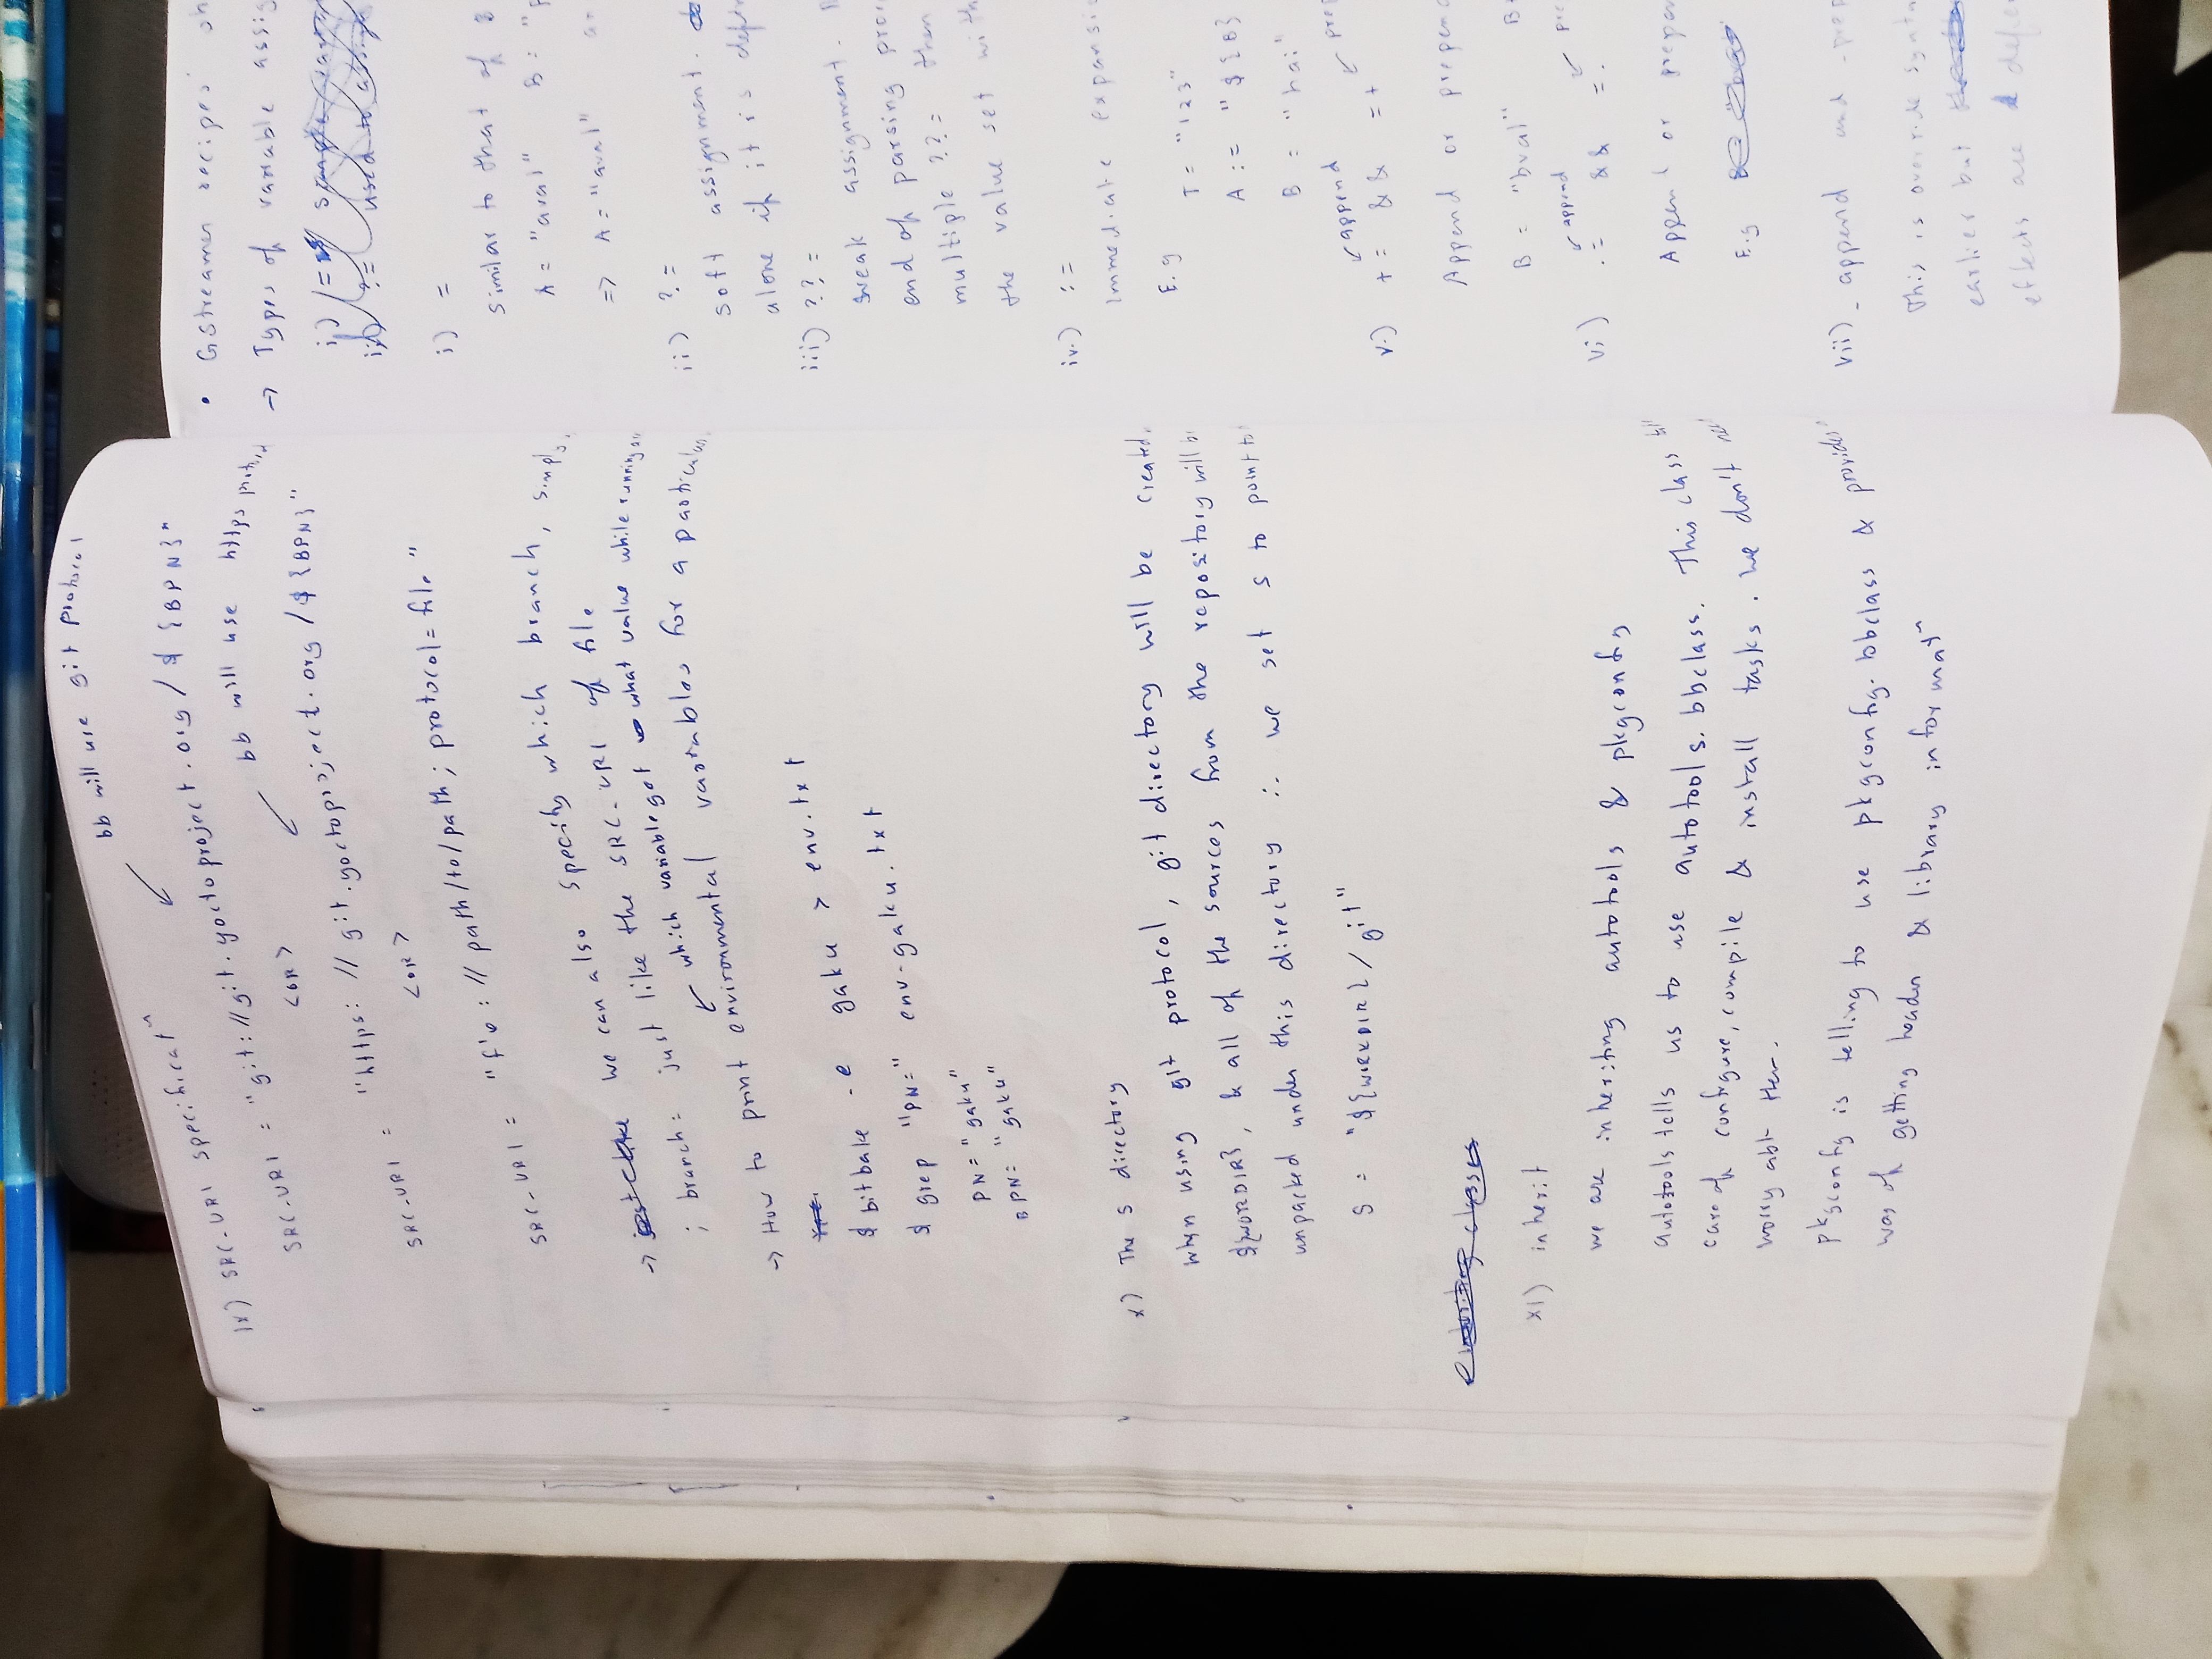 bb will use git protocol
ix) SRC-URI specificatn
SRC-URI = "git://git.yoctoproject.org/${BPN}"
<OR>
bb will use https
SRC-URI = "https://git.yoctoproject.org/${BPN}"
<OR>
SRC-URI = "file://path/to/path; protocol=file"
→ we can also specify which branch, simply
; branch= just like the SRC-URI of file
→ How to print environmental variables for a particular
which variable got what value while running
$ bitbake -e gaku > env.txt
$ grep "PN=" env-gaku.txt
PN="gaku"
BPN="gaku"
x) The S directory
when using git protocol, git directory will be created
${WORDIR}, & all of the sources from the repository will be
unpacked under this directory ∴ we set S to point to
S = "${WORKDIR}/git"
xi) inherit
we are inheriting autotools & pkgconfig
autotools tells us to use autotools.bbclass. This class
care of configure, compile & install tasks. We don't
worry abt them.
pkgconfig is telling to use pkgconfig.bbclass & provides
was of getting header & library informatn
• Gstreamer recipes
→ Types of variable
i) =
similar to that of
A = "aval" B =
=> A = "aval"
ii) ?=
soft assignment.
alone if it is
iii) ??=
weak assignment.
end of parsing
multiple ??= then
the value set
iv) :=
immediate
E.g T = "123"
A := "${B}
B = "hai"
append
v) += && =+
Append or
B = "bval"
append
vi) .= && =.
Append or
E.g
vii) _append and
This is override
earlier but
effects are